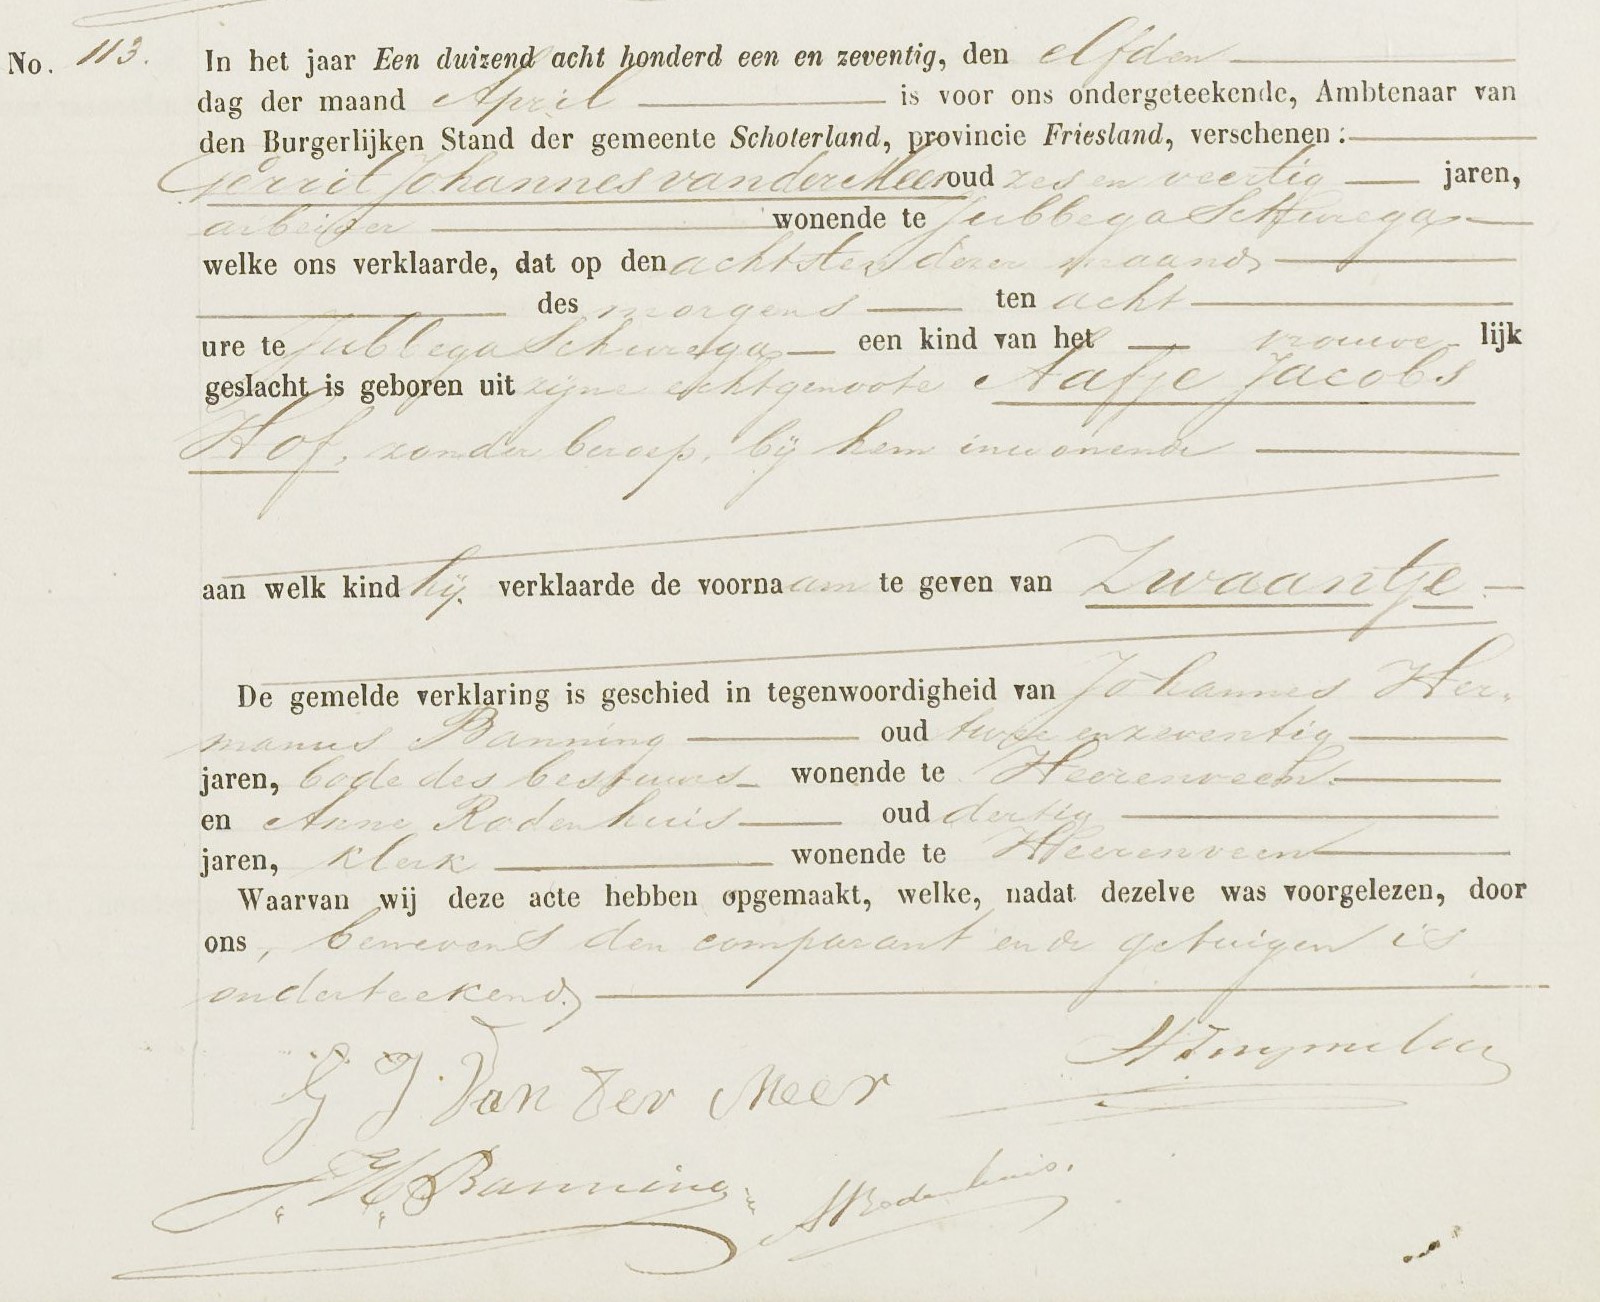 No. 113. In het jaar Een duizend acht honderd een en zeventig, den elfden
dag der maand April is voor ons ondergeteekende, Ambtenaar van
den Burgerlijken Stand der gemeente Schoterland, provincie Friesland, verschenen:
Gerrit Johannes van der Meer oud zes en veertig jaren,
arbeider wonende te Jubbega Schurega
welke ons verklaarde, dat op den achtsten dezer maand
des morgens ten acht
ure te Jubbega Schurega een kind van het vrouwelijk
geslacht is geboren uit zijne echtgenoote Aafje Jacobs
Hof, zonder beroep, bij hem inwonende
aan welk kind hij verklaarde de voornaam te geven van Zwaantje
De gemelde verklaring is geschied in tegenwoordigheid van Johannes Her-
manus Banning oud twee en zeventig
jaren, bode des bestuurs wonende te Heerenveen
en Anne Rodenhuis oud dertig
jaren, klerk wonende te Heerenveen
Waarvan wij deze acte hebben opgemaakt, welke, nadat dezelve was voorgelezen, door
ons, benevens den comparant en de getuigen is
onderteekend.
G J Van der Meer
J. H. Banning
A Rodenhuis.